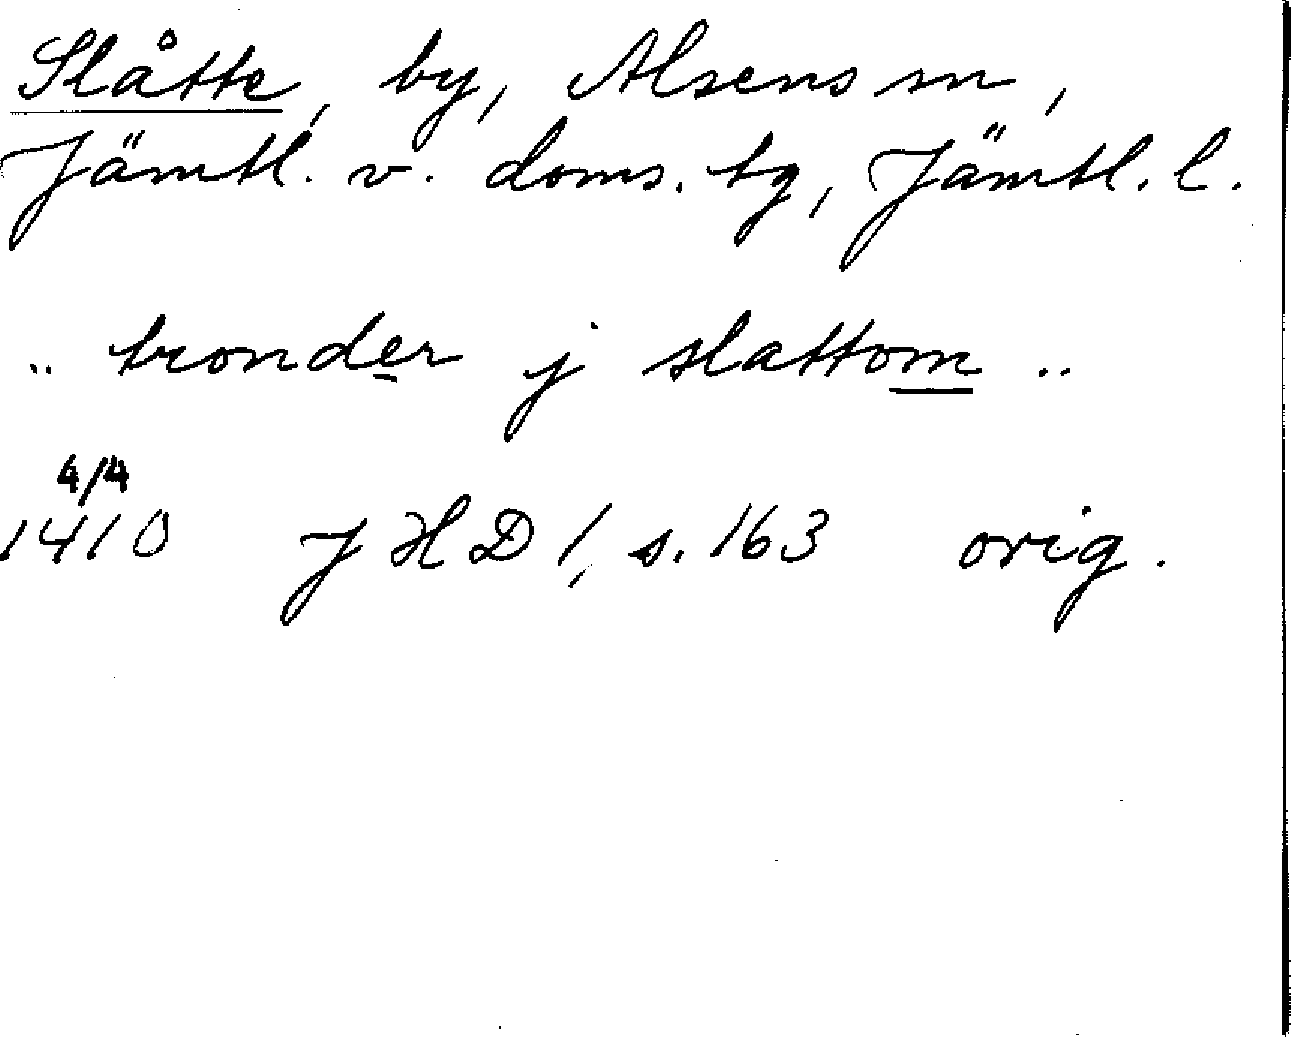 Slåtte, by, Alsens sn,
Jämtl. v. doms. tg, Jämtl. l.
.. tronder j slattom ..
4/4
1410 JHD 1, s. 163 orig.